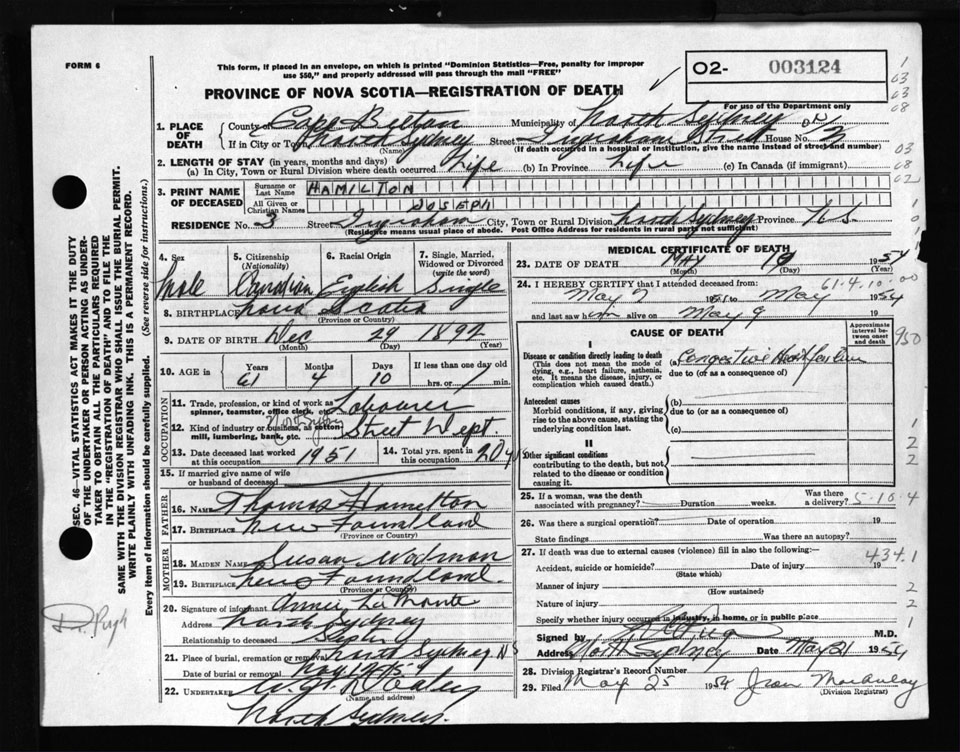 FORM 6
This form, if placed in an envelope, on which is printed "Dominion Statistics—Free, penalty for improper
use $50," and properly addressed will pass through the mail "FREE"
O2- 003124
PROVINCE OF NOVA SCOTIA—REGISTRATION OF DEATH
For use of the Department only
1. PLACE OF DEATH
County of Cape Breton Municipality of North Sydney
If in City or Town North Sydney Street Ingraham Street House No.
(Name) (If death occurred in a hospital or institution, give the name instead of street and number)
2. LENGTH OF STAY (in years, months and days)
(a) In City, Town or Rural Division where death occurred Life (b) In Province Life (c) In Canada (if immigrant)
3. PRINT NAME OF DECEASED
Surname or Last Name HAMILTON
All Given or Christian Names JOSEPH
RESIDENCE No. 3 Street Ingraham City, Town or Rural Division North Sydney Province N.S.
(Residence means usual place of abode. Post Office Address for residents in rural parts not sufficient)
4. Sex Male
5. Citizenship (Nationality) Canadian
6. Racial Origin English
7. Single, Married, Widowed or Divorced (write the word) Single
8. BIRTHPLACE Nova Scotia
(Province or Country)
9. DATE OF BIRTH Dec 29 1892
(Month) (Day) (Year)
10. AGE in Years 61 Months 4 Days 10 If less than one day old hrs. or min.
OCCUPATION
11. Trade, profession, or kind of work as spinner, teamster, office clerk, etc. Labourer
12. Kind of industry or business, as cotton mill, lumbering, bank, etc. North Sydney Street Dept.
13. Date deceased last worked at this occupation 1951
14. Total yrs. spent in this occupation 20 y
15. If married give name of wife or husband of deceased
FATHER
16. NAME Thomas Hamilton
17. BIRTHPLACE New Foundland
(Province or Country)
MOTHER
18. MAIDEN NAME Susan
19. BIRTHPLACE New Foundland.
(Province or Country)
20. Signature of informant Annie La Monte
Address North Sydney
Relationship to deceased Sister
21. Place of burial, cremation or removal North Sydney N S
Date of burial or removal May
22. UNDERTAKER W.
(Name and address)
North Sydney.
MEDICAL CERTIFICATE OF DEATH
23. DATE OF DEATH MAY 1954
(Month) (Day) (Year)
24. I HEREBY CERTIFY that I attended deceased from
61.4.10.00
May to May 1954
and last saw him alive on May 9 19
CAUSE OF DEATH
Approximate interval between onset and death
I
Disease or condition directly leading to death
(This does not mean the mode of dying, e.g., heart failure, asthenia, etc. It means the disease, injury, or complication which caused death.)
(a) Congestive Heart failure
due to (or as a consequence of)
Antecedent causes
Morbid conditions, if any, giving rise to the above cause, stating the underlying condition last.
(b)
due to (or as a consequence of)
(c)
II
Other significant conditions
contributing to the death, but not related to the disease or condition causing it.
25. If a woman, was the death associated with pregnancy? Duration weeks. Was there a delivery?
5-10-4
26. Was there a surgical operation? Date of operation 19
State findings Was there an autopsy?
27. If death was due to external causes (violence) fill in also the following:—
434.1
Accident, suicide or homicide? Date of injury 19
(State which)
Manner of injury
(How sustained)
Nature of injury
Specify whether injury occurred in industry, in home, or in public place
Signed by M.D.
Address North Sydney Date May 21 1954
28. Division Registrar's Record Number
29. Filed May 25 1954 Jean Macaulay
(Division Registrar)
SEC. 46—VITAL STATISTICS ACT MAKES IT THE DUTY
OF THE UNDERTAKER OR PERSON ACTING AS UNDER-
TAKER TO OBTAIN ALL THE PARTICULARS REQUIRED
IN THE "REGISTRATION OF DEATH" AND TO FILE THE
SAME WITH THE DIVISION REGISTRAR WHO SHALL ISSUE THE BURIAL PERMIT.
WRITE PLAINLY WITH UNFADING INK. THIS IS A PERMANENT RECORD.
Every item of information should be carefully supplied. (See reverse side for instructions.)
D. Pugh